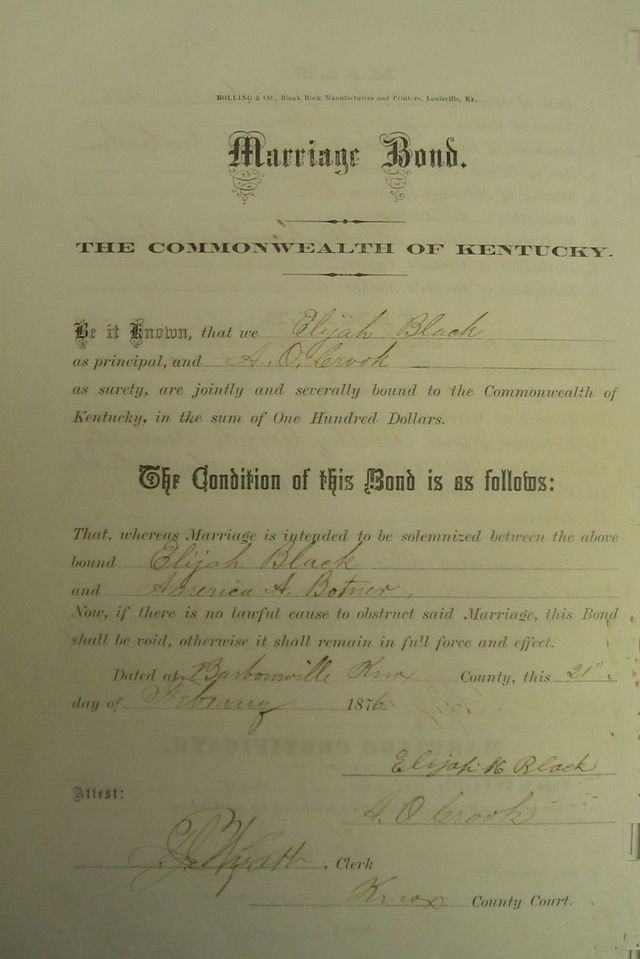 BOLLING & CO., Blank Book Manufacturers and Printers, Louisville, Ky.
Marriage Bond.
THE COMMONWEALTH OF KENTUCKY.
Be it Known, that we Elijah Black
as principal, and A. O. Crook
as surety, are jointly and severally bound to the Commonwealth of
Kentucky, in the sum of One Hundred Dollars.
The Condition of this Bond is as follows:
That, whereas Marriage is intended to be solemnized between the above
bound Elijah Black
and America A. Botner,
Now, if there is no lawful cause to obstruct said Marriage, this Bond
shall be void, otherwise it shall remain in full force and effect.
Dated at Barbourville Knox County, this 21"
day of February 1876
Elijah H Black
Attest: A. O Crook
Wyatt, Clerk
Knox County Court.